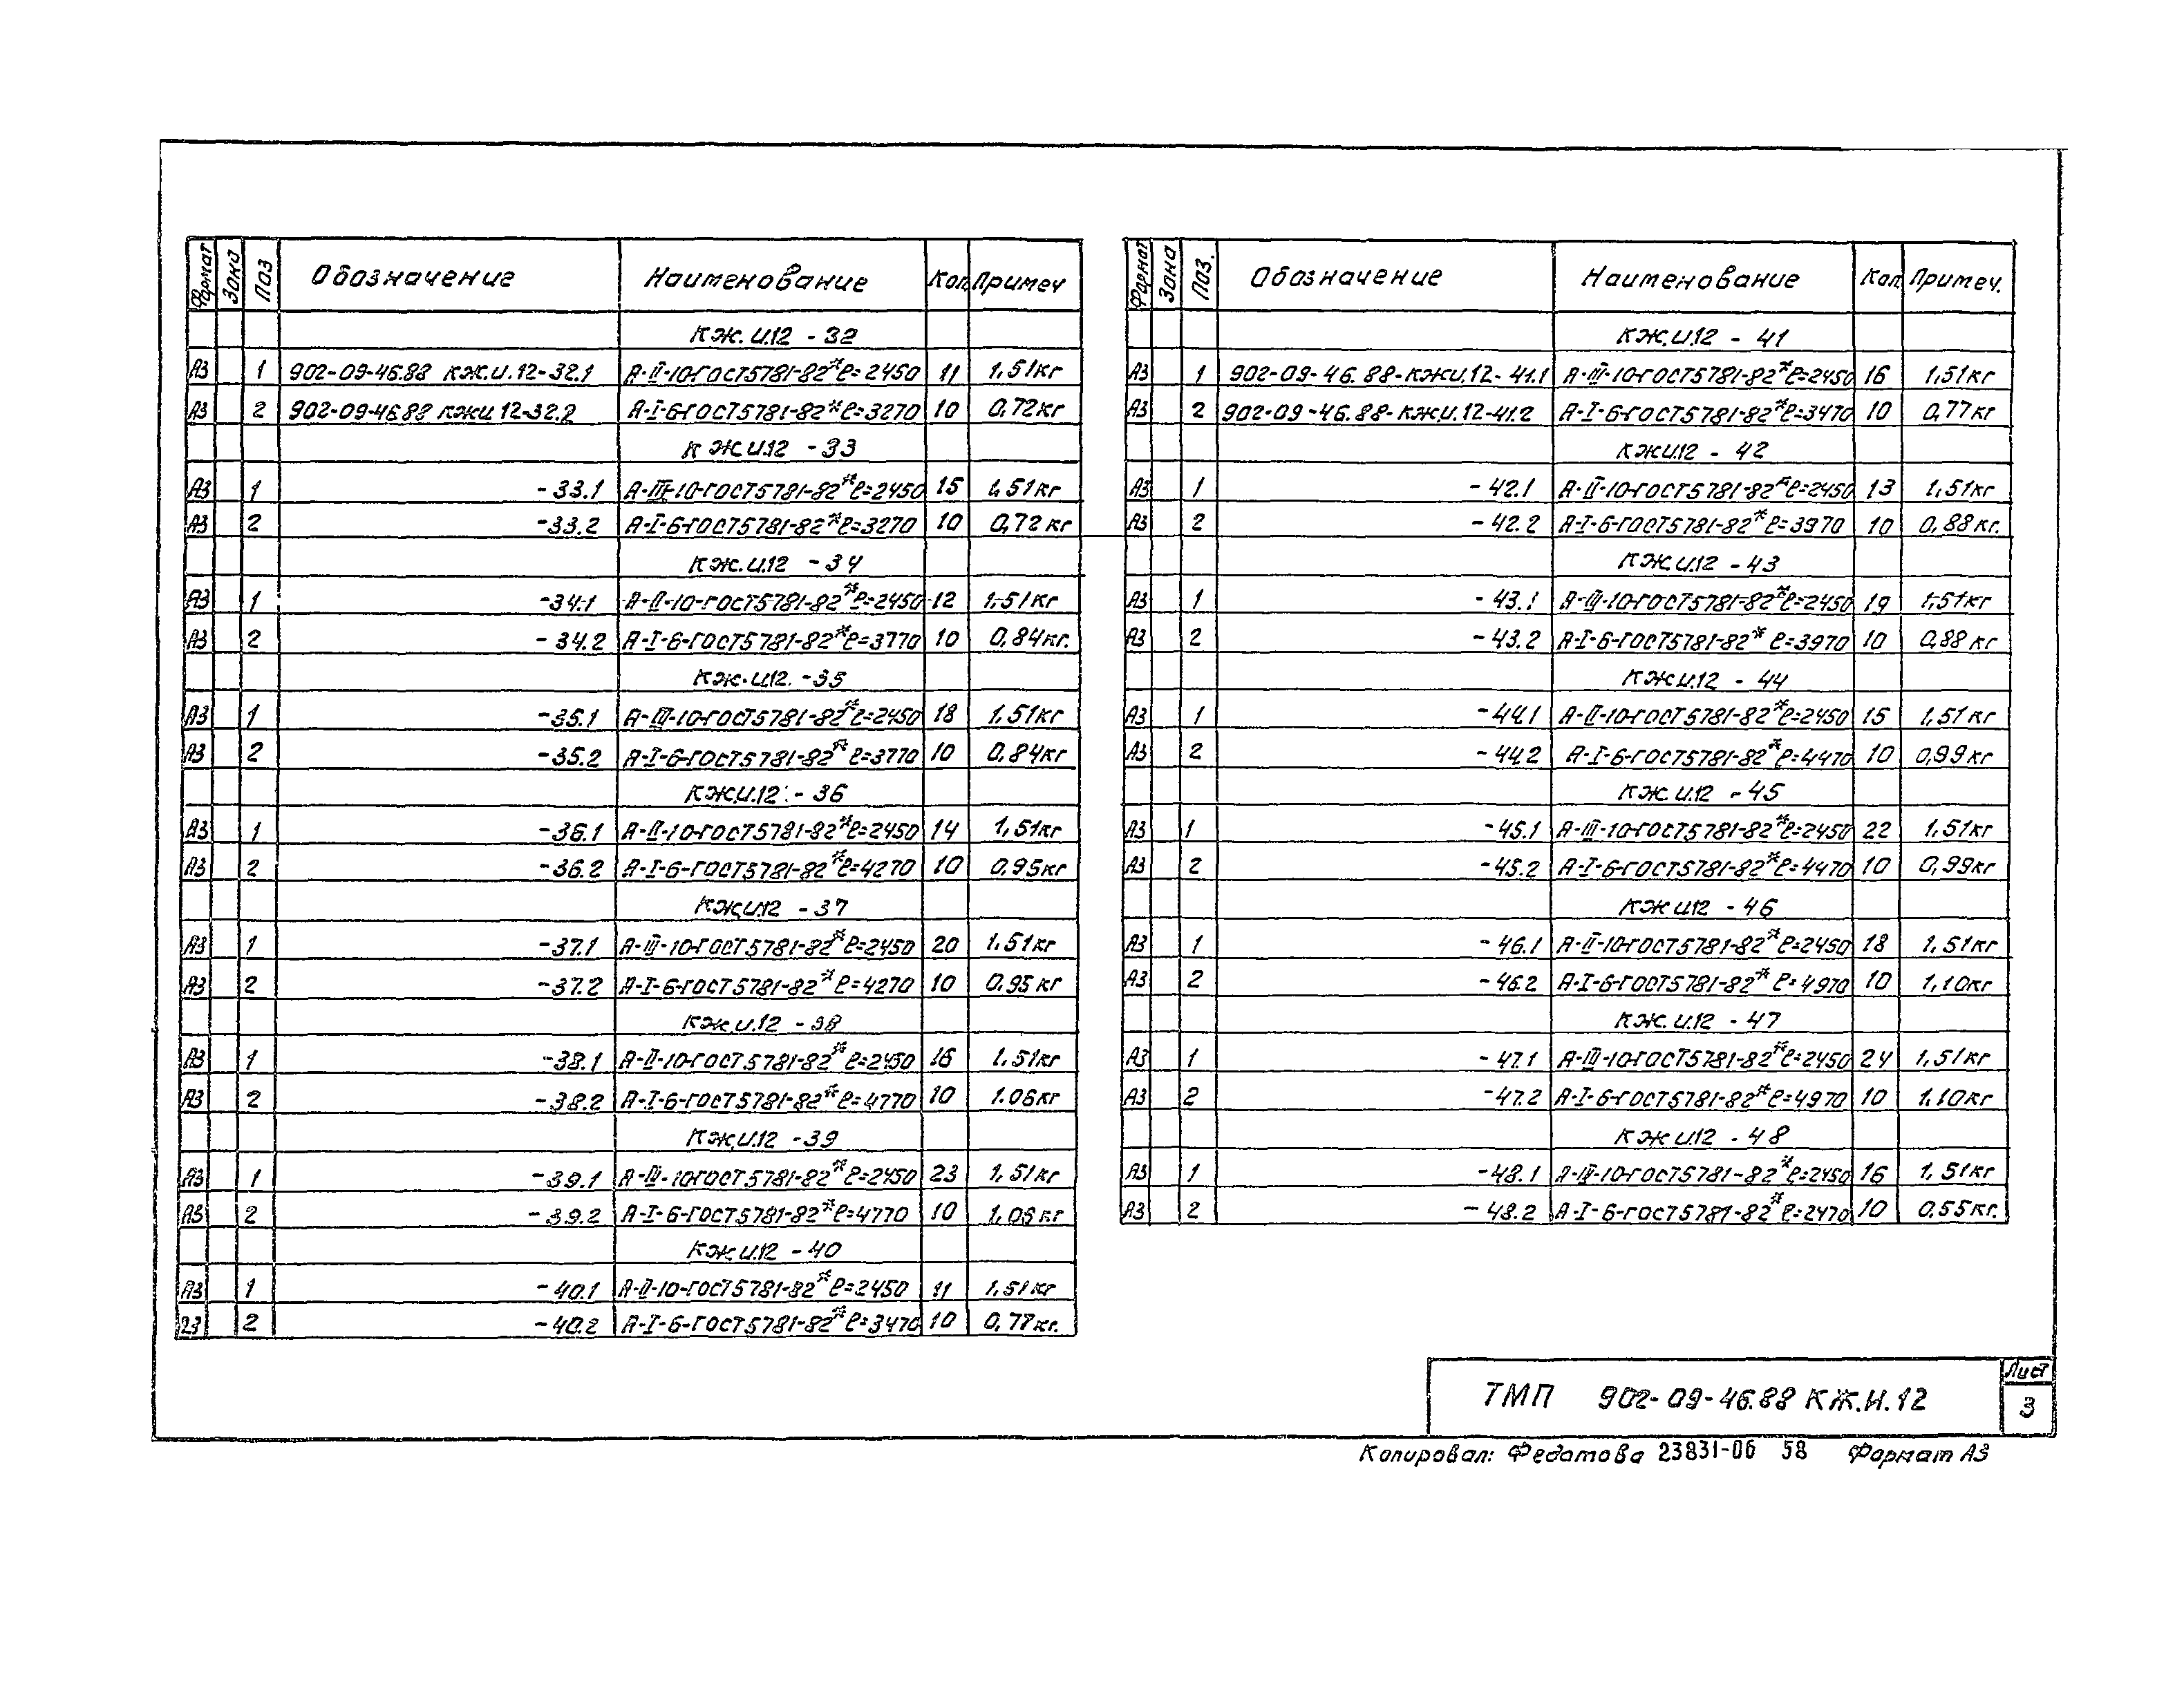 Формат Зона Поз Обозначение Наименование Кол. Примеч
КЖ.И.12 - 32
А3 1 902-09-46.88 КЖ.И.12-32.1 А-II-10-ГОСТ5781-82* ℓ=2450 11 1,51кг
А3 2 902-09-46.88 КЖИ 12-32.2 А-I-6-ГОСТ5781-82* ℓ=3270 10 0,72кг
КЖИ.12 - 33
А3 1 -33.1 А-III-10-ГОСТ5781-82* ℓ=2450 15 1,51кг
А3 2 -33.2 А-I-6-ГОСТ5781-82* ℓ=3270 10 0,72кг
КЖ.И.12 - 34
А3 1 -34.1 А-II-10-ГОСТ5781-82* ℓ=2450 12 1,51кг
А3 2 -34.2 А-I-6-ГОСТ5781-82* ℓ=3770 10 0,84кг.
КЖ.И.12. -35
А3 1 -35.1 А-III-10-ГОСТ5781-82* ℓ=2450 18 1,51кг
А3 2 -35.2 А-I-6-ГОСТ5781-82* ℓ=3770 10 0,84кг
КЖ.И.12 - 36
А3 1 -36.1 А-II-10-ГОСТ5781-82* ℓ=2450 14 1,51кг
А3 2 -36.2 А-I-6-ГОСТ5781-82* ℓ=4270 10 0,95кг
КЖ.И12 - 37
А3 1 -37.1 А-III-10-ГОСТ5781-82* ℓ=2450 20 1.51кг
А3 2 -37.2 А-I-6-ГОСТ5781-82* ℓ=4270 10 0,95кг
КЖ.И.12 - 38
А3 1 -38.1 А-II-10-ГОСТ5781-82* ℓ=2450 16 1.51кг
А3 2 -38.2 А-I-6-ГОСТ5781-82* ℓ=4770 10 1.06кг
КЖ.И.12 - 39
А3 1 -39.1 А-III-10-ГОСТ5781-82* ℓ=2450 23 1,51кг
А3 2 -39.2 А-I-6-ГОСТ5781-82* ℓ=4770 10 1,06кг
КЖ.И.12 - 40
А3 1 -40.1 А-II-10-ГОСТ5781-82* ℓ=2450 11 1,51кг
А3 2 -40.2 А-I-6-ГОСТ5781-82* ℓ=3470 10 0,77кг.
Формат Зона Поз. Обозначение Наименование Кол. Примеч.
КЖ.И.12 - 41
А3 1 902-09-46.88-КЖИ.12-41.1 А-III-10-ГОСТ5781-82* ℓ=2450 16 1,51кг
А3 2 902-09-46.88-КЖ.И.12-41.2 А-I-6-ГОСТ5781-82* ℓ=3470 10 0,77кг
КЖИ.12 - 42
А3 1 -42.1 А-II-10-ГОСТ5781-82* ℓ=2450 13 1,51кг
А3 2 -42.2 А-I-6-ГОСТ5781-82* ℓ=3970 10 0,88кг.
КЖ.И.12 - 43
А3 1 -43.1 А-III-10-ГОСТ5781-82* ℓ=2450 19 1,51кг
А3 2 -43.2 А-I-6-ГОСТ5781-82* ℓ=3970 10 0,88кг
КЖИ.12 - 44
А3 1 -44.1 А-II-10-ГОСТ5781-82* ℓ=2450 15 1,51кг
А3 2 -44.2 А-I-6-ГОСТ5781-82* ℓ=4470 10 0,99кг
КЖ.И.12 - 45
А3 1 -45.1 А-III-10-ГОСТ5781-82* ℓ=2450 22 1.51кг
А3 2 -45.2 А-I-6-ГОСТ5781-82* ℓ=4470 10 0,99кг
КЖИ12 - 46
А3 1 -46.1 А-II-10-ГОСТ5781-82* ℓ=2450 18 1,51кг
А3 2 -46.2 А-I-6-ГОСТ5781-82* ℓ=4970 10 1,10кг
КЖ.И.12 - 47
А3 1 -47.1 А-III-10-ГОСТ5781-82* ℓ=2450 24 1,51кг
А3 2 -47.2 А-I-6-ГОСТ5781-82* ℓ=4970 10 1.10кг
КЖИ.12 - 48
А3 1 -48.1 А-III-10-ГОСТ5781-82* ℓ=2450 16 1,51кг
А3 2 -48.2 А-I-6-ГОСТ5781-82* ℓ=2470 10 0.55кг.
ТМП 902-09-46.88 КЖ.И.12
Лист
3
Копировал: Федотова 23831-06 58 Формат А3